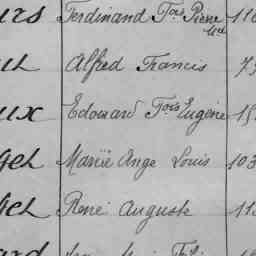 urs Ferdinand Fois Pierre 110
Alfred Francis 73
ux Edouard Fois Eugène 15
gel Marie Ange Louis 103
gel René Auguste 11
ard